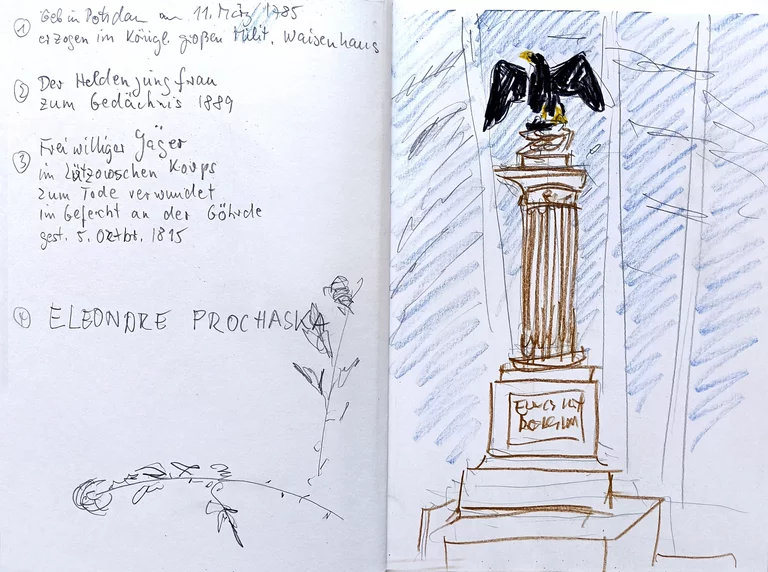 ① Geb in Potsdam am 11. März 1785
erzogen im Königl. großen Milit. Waisenhaus
② Der Heldenjungfrau
zum Gedächnis 1889
③ Freiwilliger Jäger
im Lützowschen Korps
zum Tode verwundet
im Gefecht an der Göhrde
gest. 5. Octbr. 1815
④ ELEONORE PROCHASKA